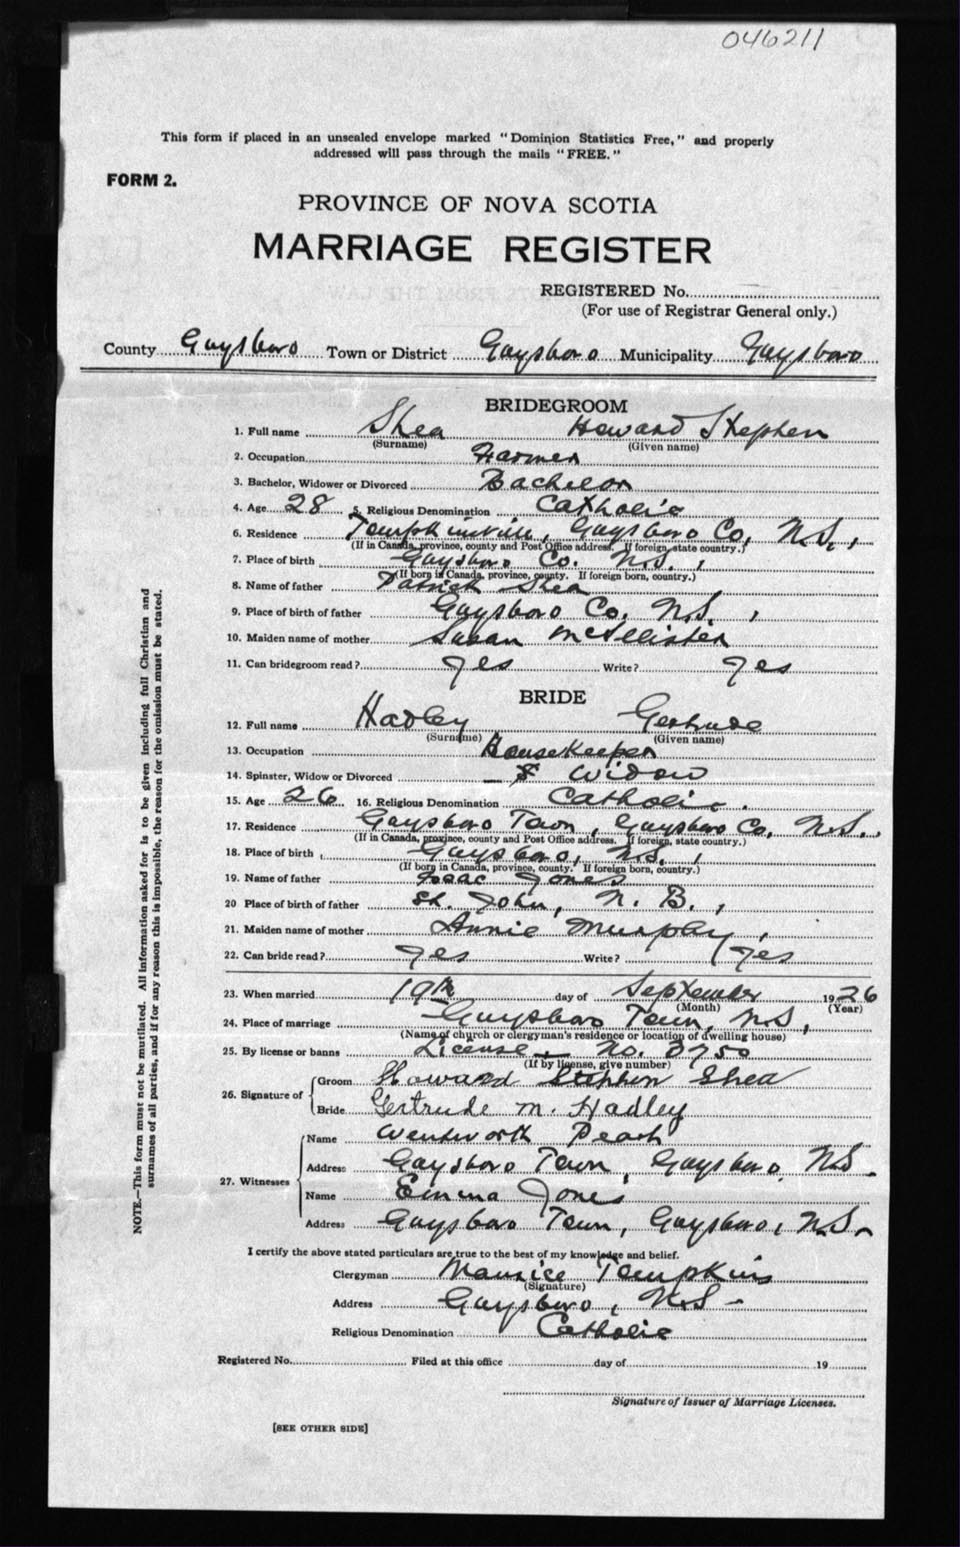 046211
This form if placed in an unsealed envelope marked "Dominion Statistics Free," and properly
addressed will pass through the mails "FREE."
FORM 2.
PROVINCE OF NOVA SCOTIA
MARRIAGE REGISTER
REGISTERED No.
(For use of Registrar General only.)
County Guysboro Town or District Guysboro Municipality Guysboro
BRIDEGROOM
1. Full name Shea Howard Stephen
(Surname) (Given name)
2. Occupation Farmer
3. Bachelor, Widower or Divorced Bachelor
4. Age 28 5. Religious Denomination Catholic
6. Residence Tompkinville, Guysboro Co, N.S.,
(If in Canada, province, county and Post Office address. If foreign, state country.)
7. Place of birth Guysboro Co. N.S.,
(If born in Canada, province, county. If foreign born, country.)
8. Name of father Patrick Shea
9. Place of birth of father Guysboro Co, N.S.,
10. Maiden name of mother Susan McAllister
11. Can bridegroom read? Yes Write? Yes
BRIDE
12. Full name Hadley Gertrude
(Surname) (Given name)
13. Occupation Housekeeper
14. Spinster, Widow or Divorced Widow
15. Age 26 16. Religious Denomination Catholic.
17. Residence Guysboro Town, Guysboro Co, N.S.,
(If in Canada, province, county and Post Office address. If foreign, state country.)
18. Place of birth Guysboro, N.S.,
(If born in Canada, province, county. If foreign born, country.)
19. Name of father Isaac Jones
20 Place of birth of father St. John, N. B.,
21. Maiden name of mother Annie Murphy,
22. Can bride read? Yes Write? Yes
23. When married 19th day of September 1926
(Month) (Year)
24. Place of marriage Guysboro Town, N.S.,
(Name of church or clergyman's residence or location of dwelling house)
25. By license or banns License No. 3750
(If by license, give number)
26. Signature of Groom Howard Stephen Shea
Bride Gertrude M. Hadley
27. Witnesses Name Wentworth Peart
Address Guysboro Town, Guysboro, N.S.
Name Emma Jones
Address Guysboro Town, Guysboro, N.S.
I certify the above stated particulars are true to the best of my knowledge and belief.
Clergyman Maurice Tompkins
(Signature)
Address Guysboro, N.S.
Religious Denomination Catholic
Registered No. Filed at this office day of 19
Signature of Issuer of Marriage Licenses.
[SEE OTHER SIDE]
NOTE.—This form must not be mutilated. All information asked for is to be given including full Christian and
surnames of all parties, and if for any reason this is impossible, the reason for the omission must be stated.